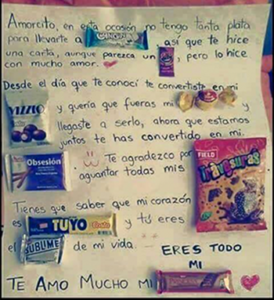 Amorcito, en esta ocasión no tengo tanta plata
para llevarte a así que te hice
una carta, aunque parezca un , pero lo hice
con mucho amor.
Desde el día que te conocí te convertiste en mi
VIZZIO y quería que fueras mi
llegaste a serlo, ahora que estamos
juntos te has convertido en mi
Obsesión Te agradezco por
aguantar todas mis FIELD Travesuras
Tienes que saber que mi corazón
es TUYO y tú eres
el SUBLIME de mi vida
ERES TODO
MI
TE AMO MUCHO MI